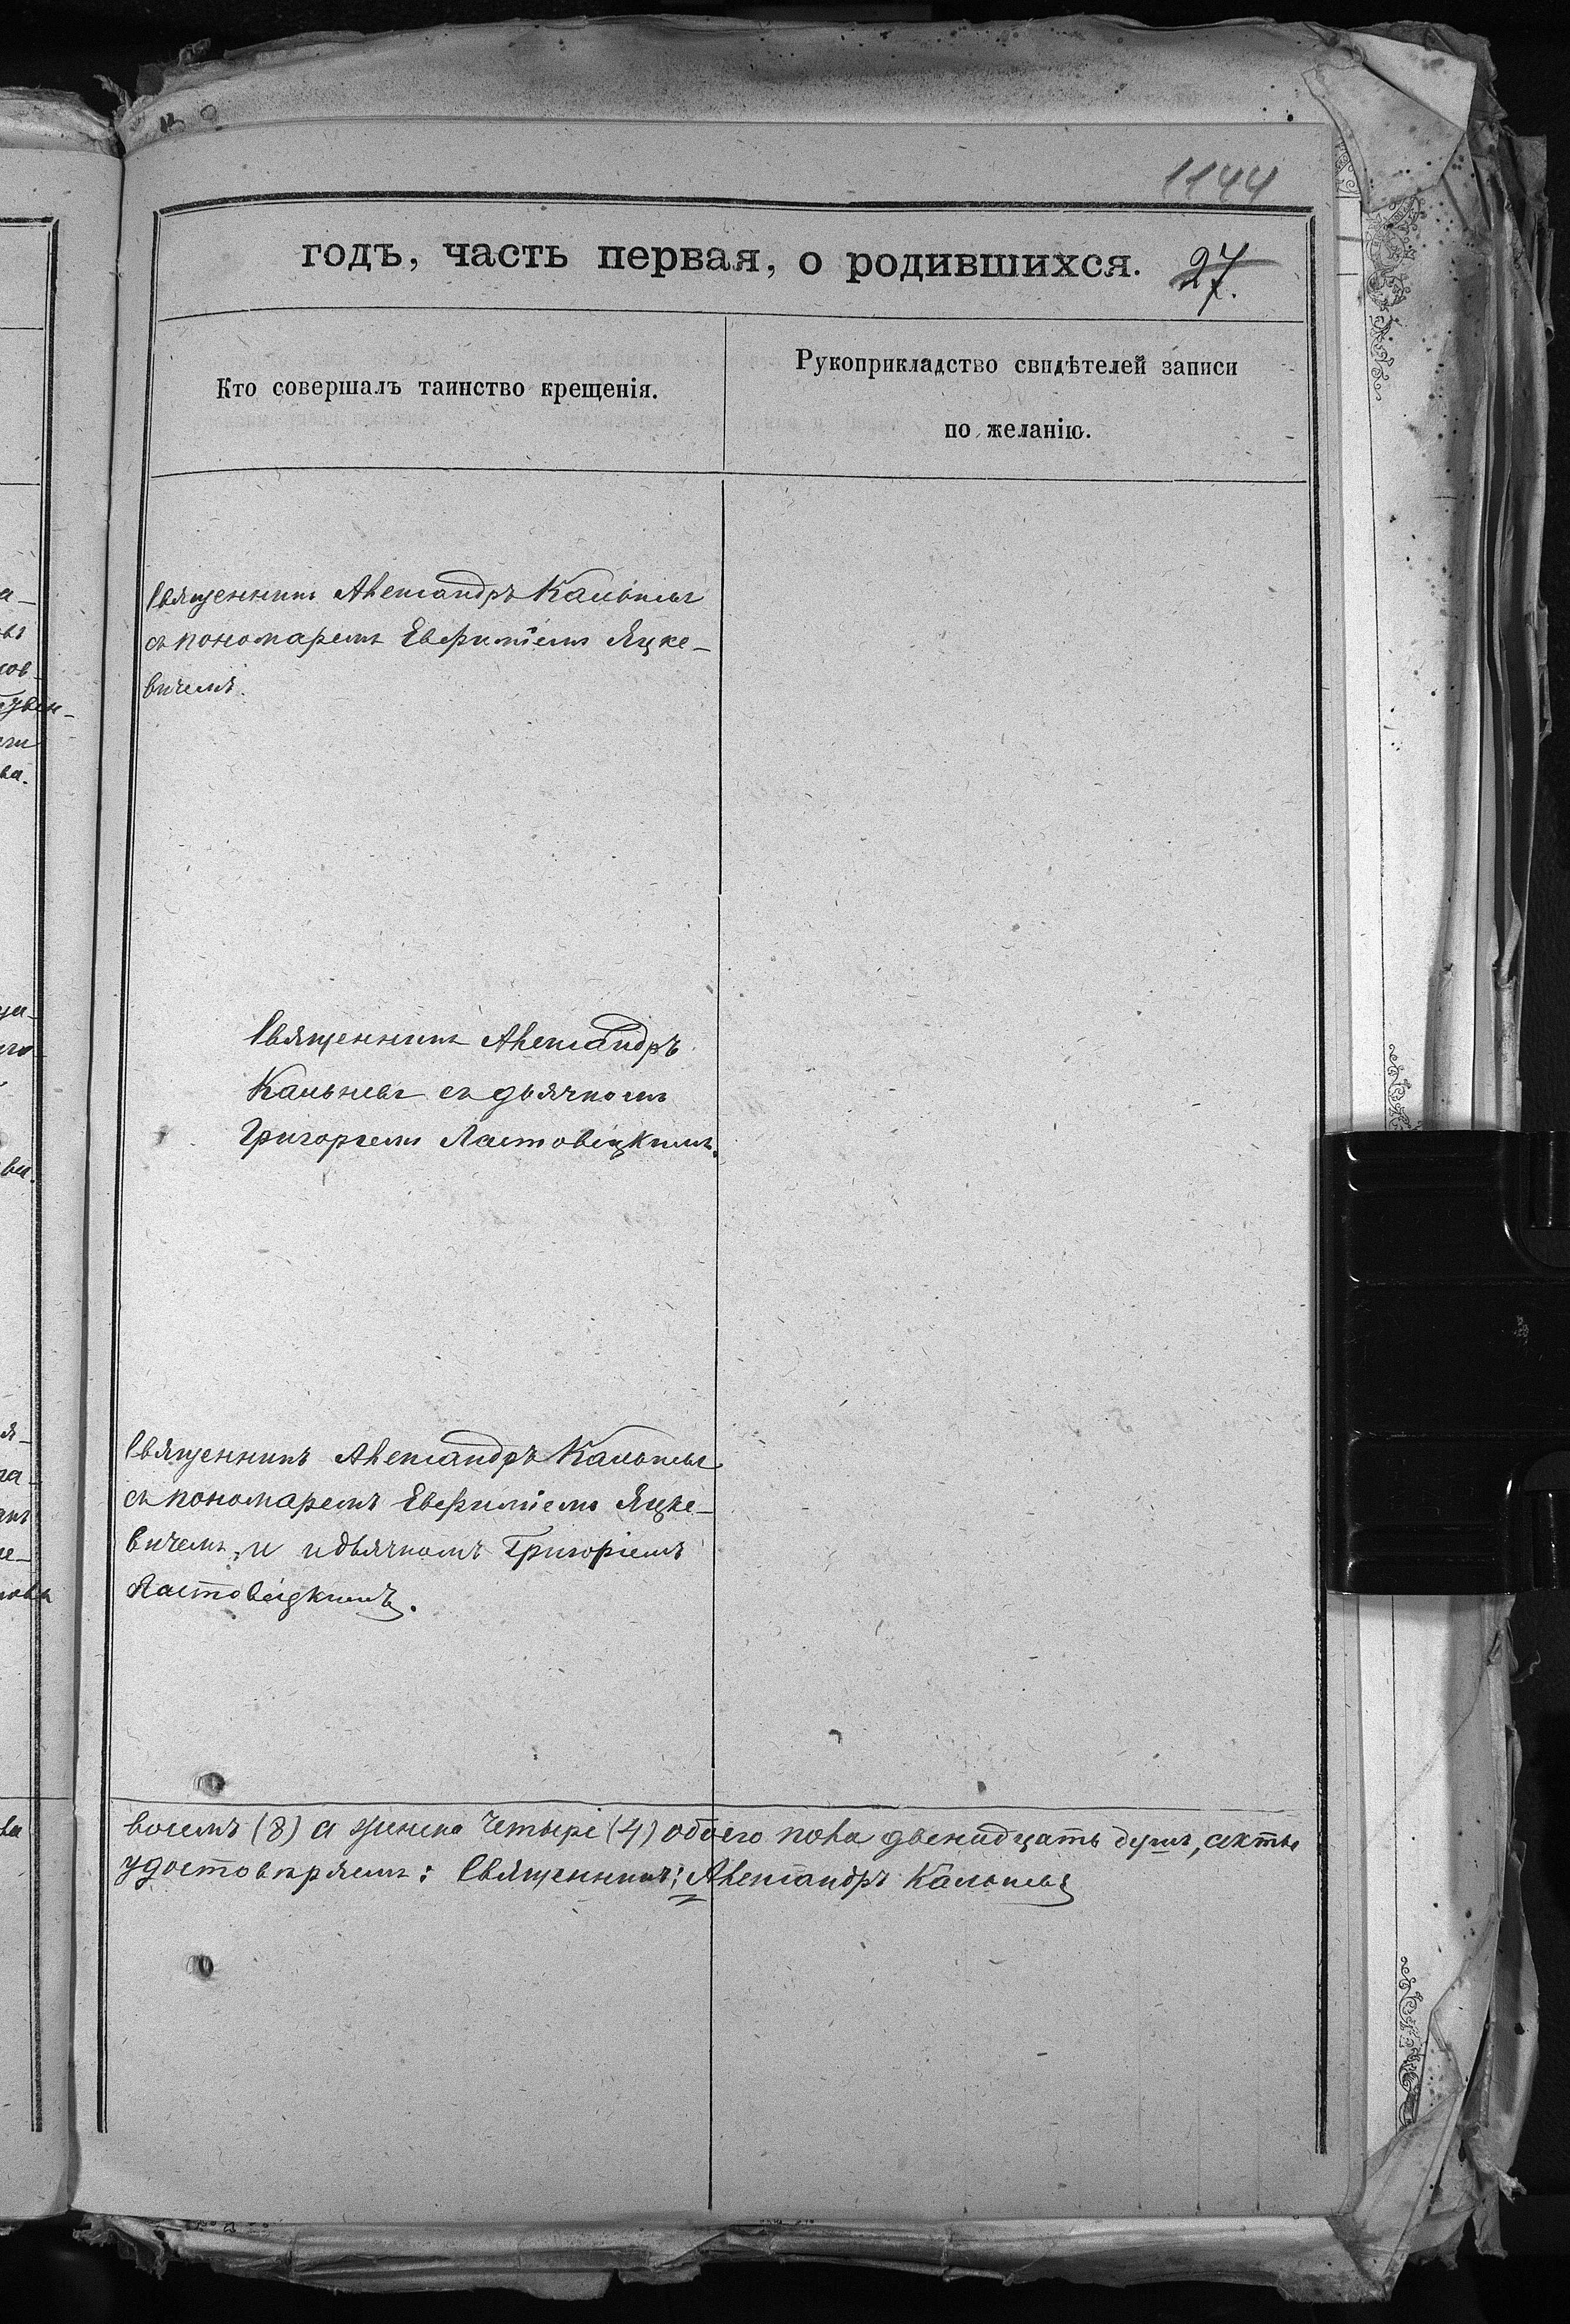 1144
годъ, часть первая, о родившихся. 27.
Кто совершалъ таинство крещенія.
Рукоприкладство свидѣтелей записи
по желанію.
Священникъ Александръ Кальневъ
съ пономаремъ Евфиміемъ Яцке-
вичемъ.
Священникъ Александръ
Кальневъ съ дьячкомъ
Григоріемъ Ластовецкимъ.
Священникъ Александръ Кальневъ
съ пономаремъ Евфиміемъ Яцке-
вичемъ, и дьячкомъ Григоріемъ
Ластовецкимъ.
восемъ (8) а женска четыре (4) обоего пола двенадцать душъ,
удостовѣряемъ: Священникъ: Александръ Кальневъ